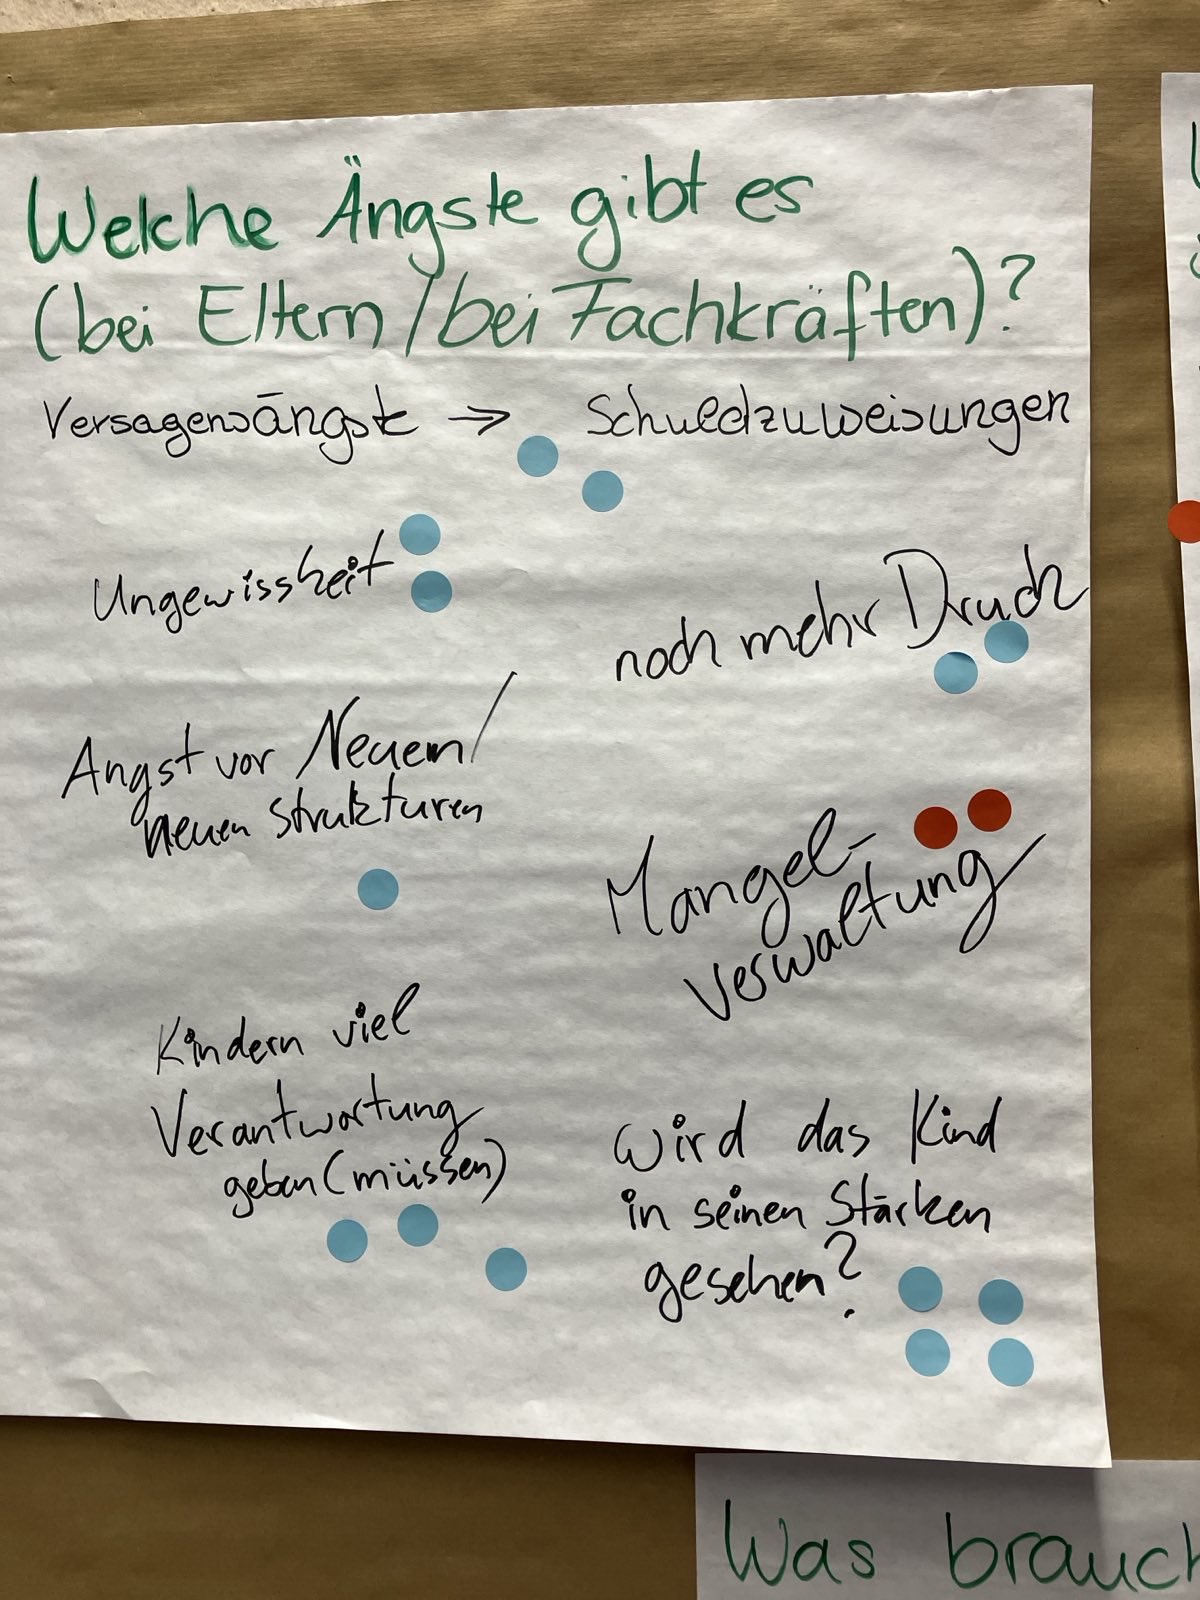 Welche Ängste gibt es
(bei Eltern/bei Fachkräften)?
Versagensängste → Schuldzuweisungen
Ungewissheit
noch mehr Druck
Angst vor Neuem/
neuen Strukturen
Mangel-
verwaltung
Kindern viel
Verantwortung
geben (müssen)
Wird das Kind
in seinen Stärken
gesehen?
Was brauch